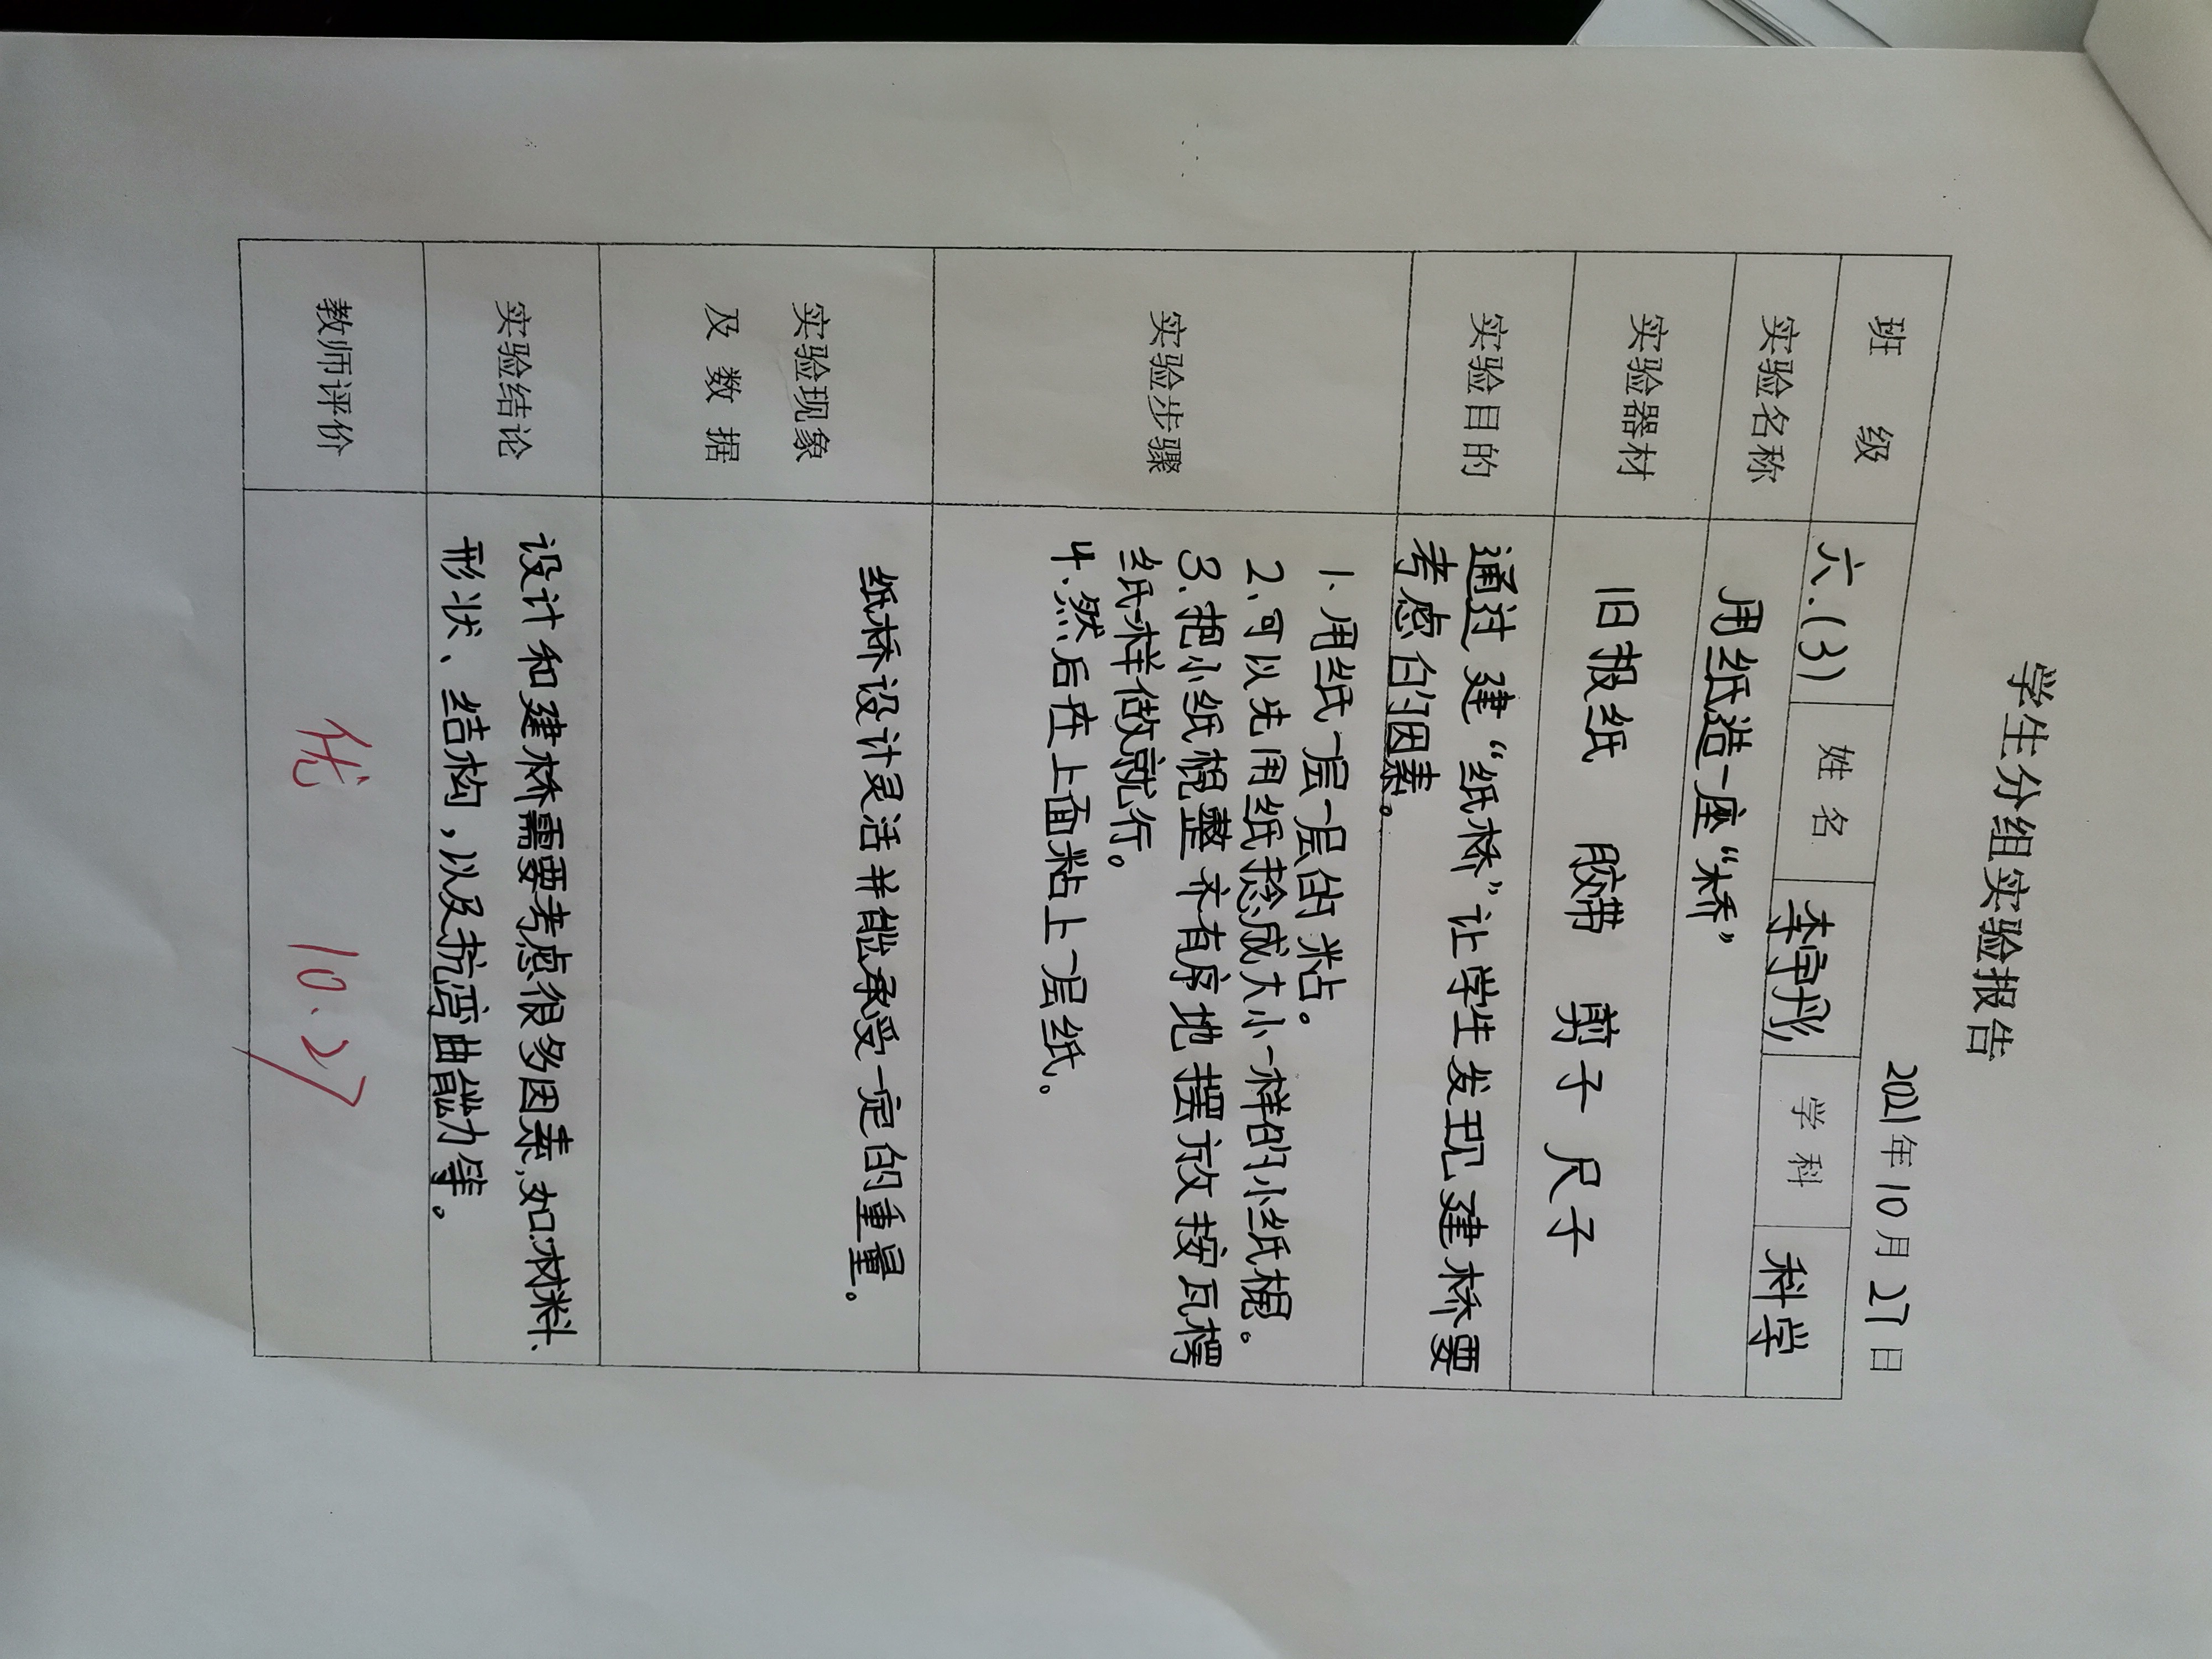 学生分组实验报告
2021年10月27日
班 级 六.(3) 姓 名 李宇彤 学 科 科学
实验名称 用纸造一座“桥”
实验器材 旧报纸 胶带 剪子 尺子
实验目的 通过建“纸桥”让学生发现建桥要
考虑的因素。
实验步骤 1.用纸一层一层的粘。
2.可以先用纸捻成大小一样的小纸棍。
3.把小纸棍整齐有序地摆放按瓦楞
纸样做就行。
4.然后在上面粘上一层纸。
实验现象 纸桥设计灵活并能承受一定的重量。
及 数 据
实验结论 设计和建桥需要考虑很多因素,如:材料、
形状、结构,以及抗弯曲能力等。
教师评价 优 10.27